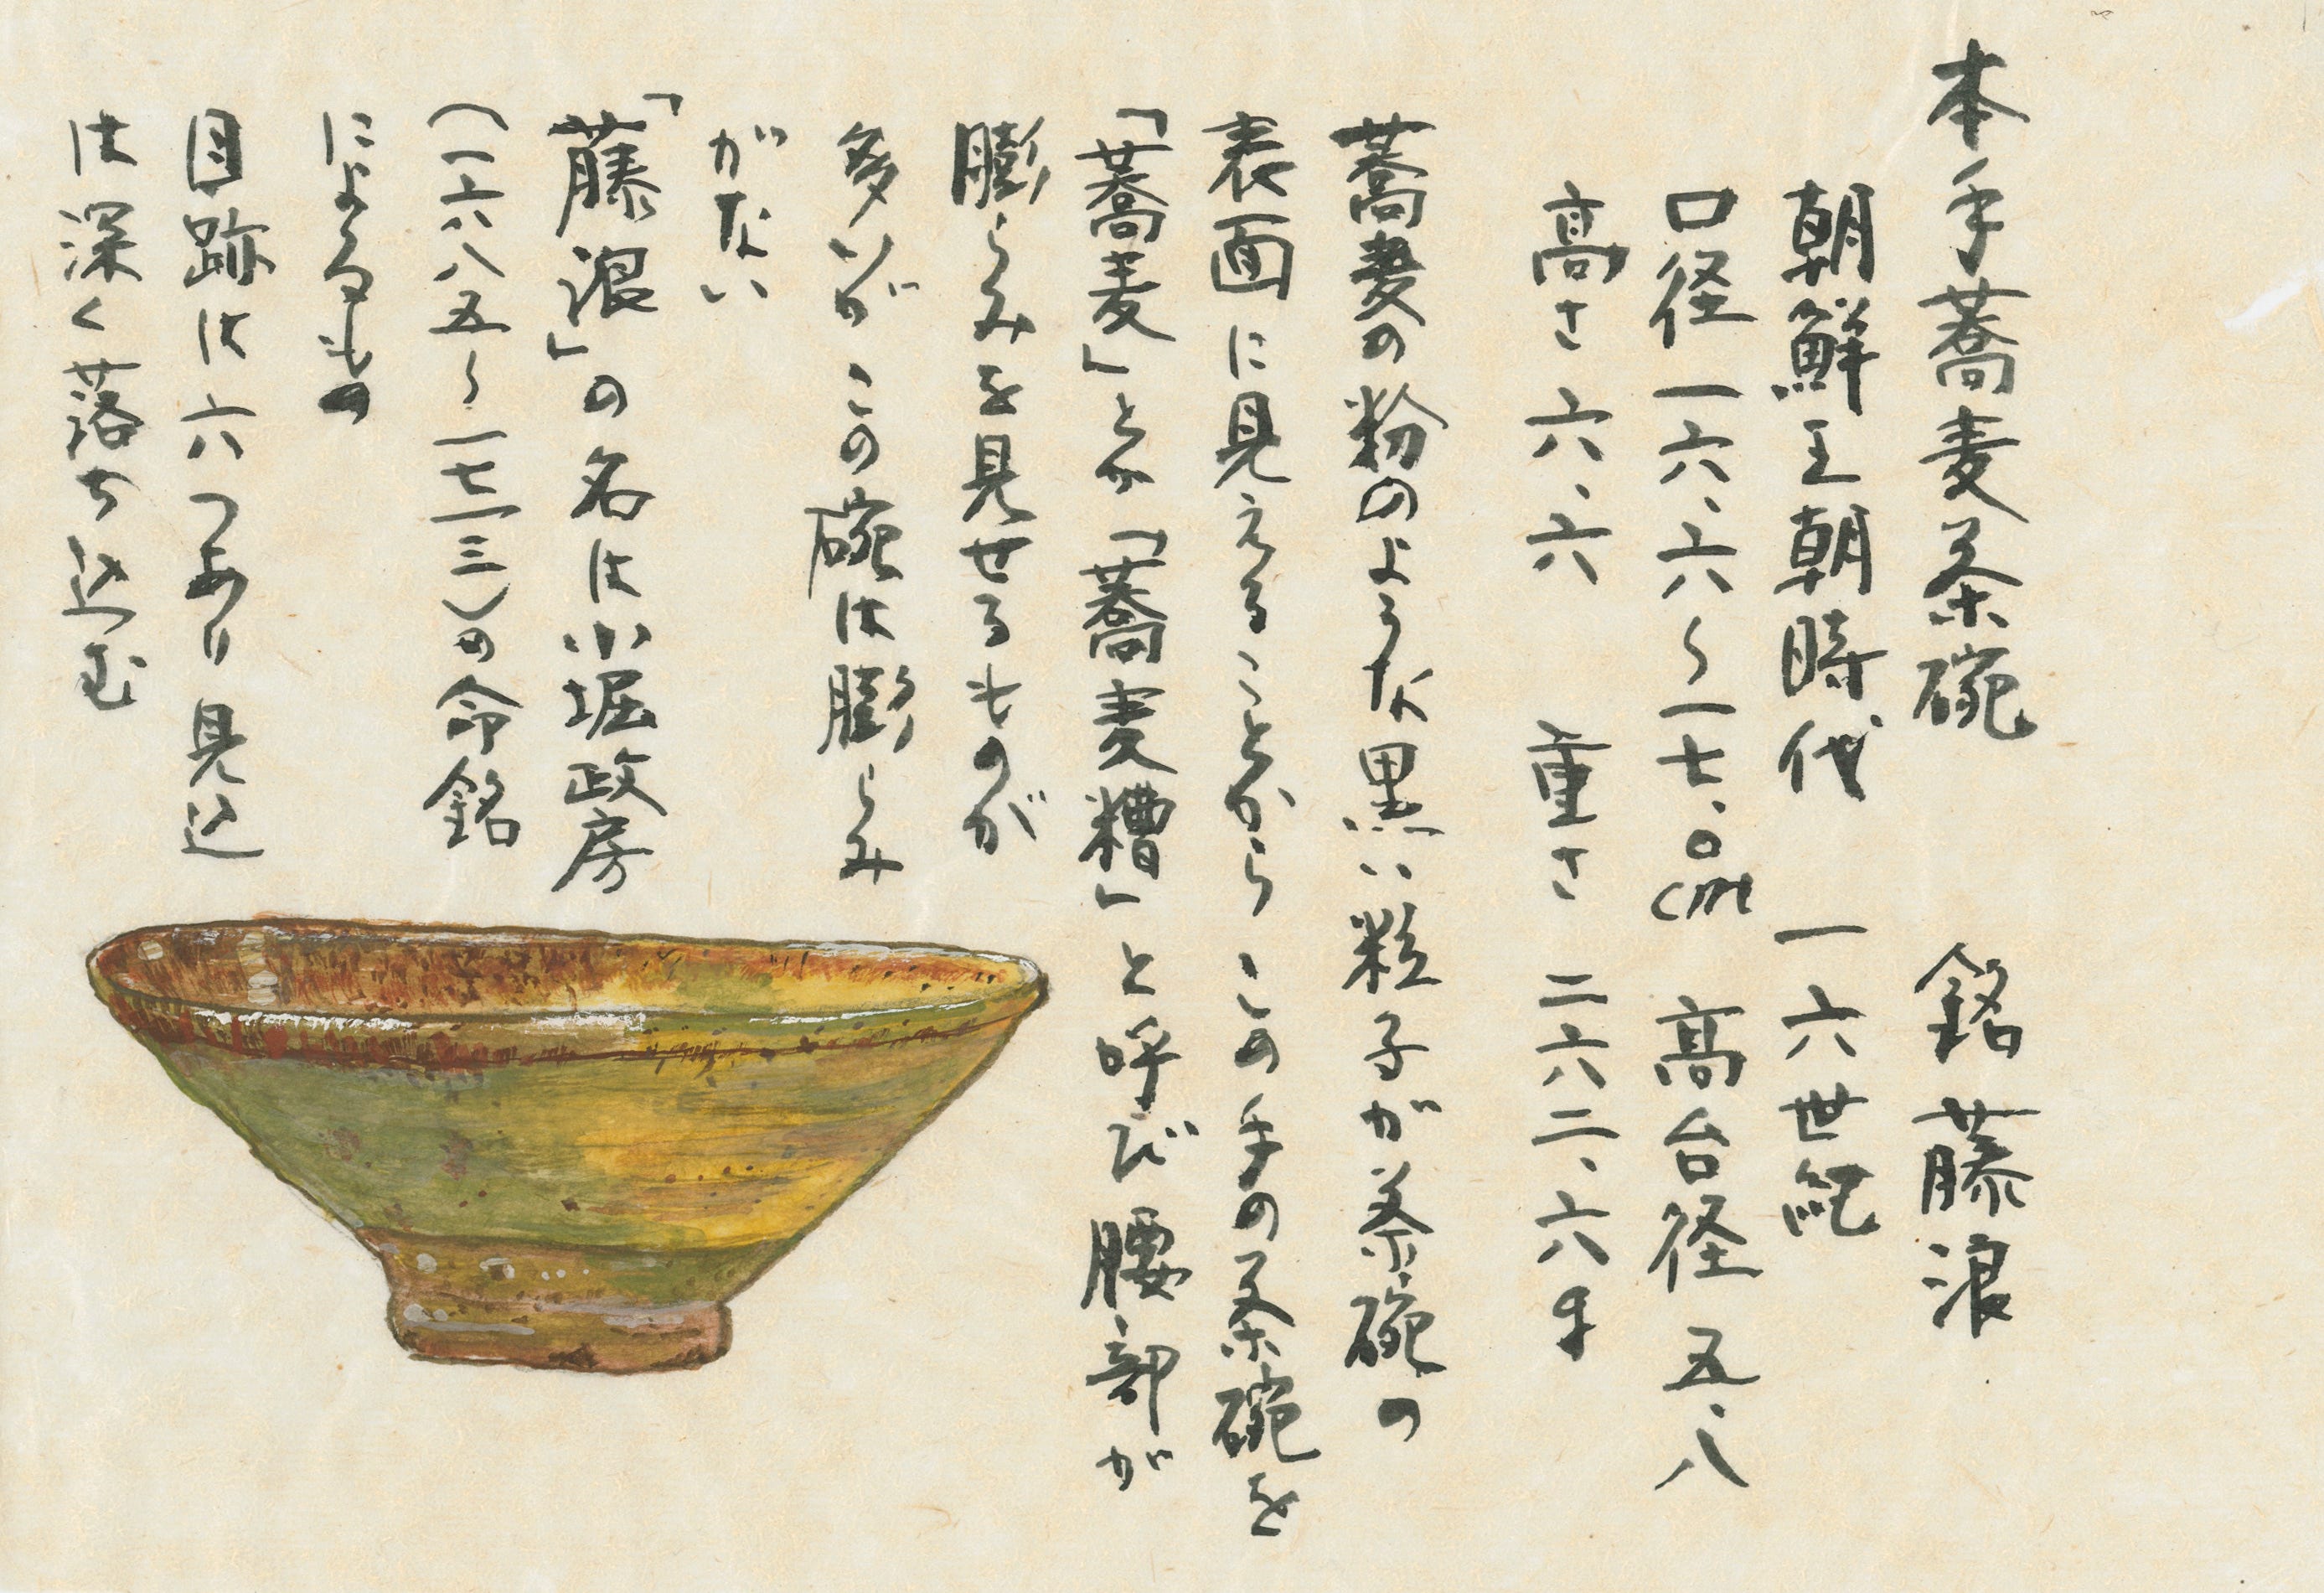 本手蕎麦茶碗 銘 藤浪
朝鮮王朝時代 一六世紀
口径一六.六〜一七.〇cm 高台径 五.八
高さ 六.六 重さ 二六二.六g
蕎麦の粉のような黒い粒子が茶碗の
表面に見えることからこの手の茶碗を
「蕎麦」とか「蕎麦糟」と呼び腰部が
膨らみを見せるものが
多いがこの碗は膨らみ
がない
「藤浪」の名は小堀政房
(一六八五〜一七一三)の命銘
によるもの
目跡は六つあり見込
は深く落ち込む